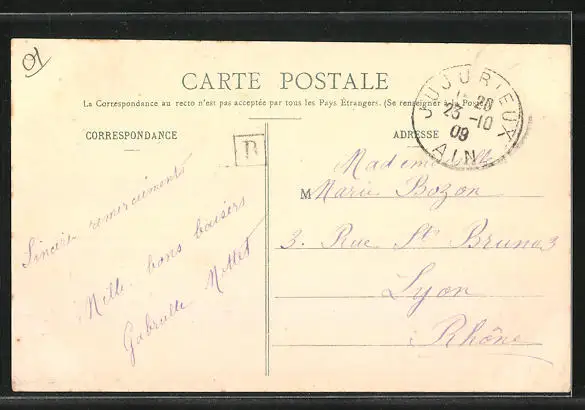 01
CARTE POSTALE
La Correspondance au recto n'est pas acceptée par tous les Pays Étrangers. (Se renseigner à la Poste)
CORRESPONDANCE
ADRESSE
JUJURIEUX
20
23 -10
09
AIN
B
Sincères remerciements
Mille bons baisers
Gabrielle
Mademoiselle
M Marie Bozon
3. Rue St Bruno 3
Lyon
Rhône